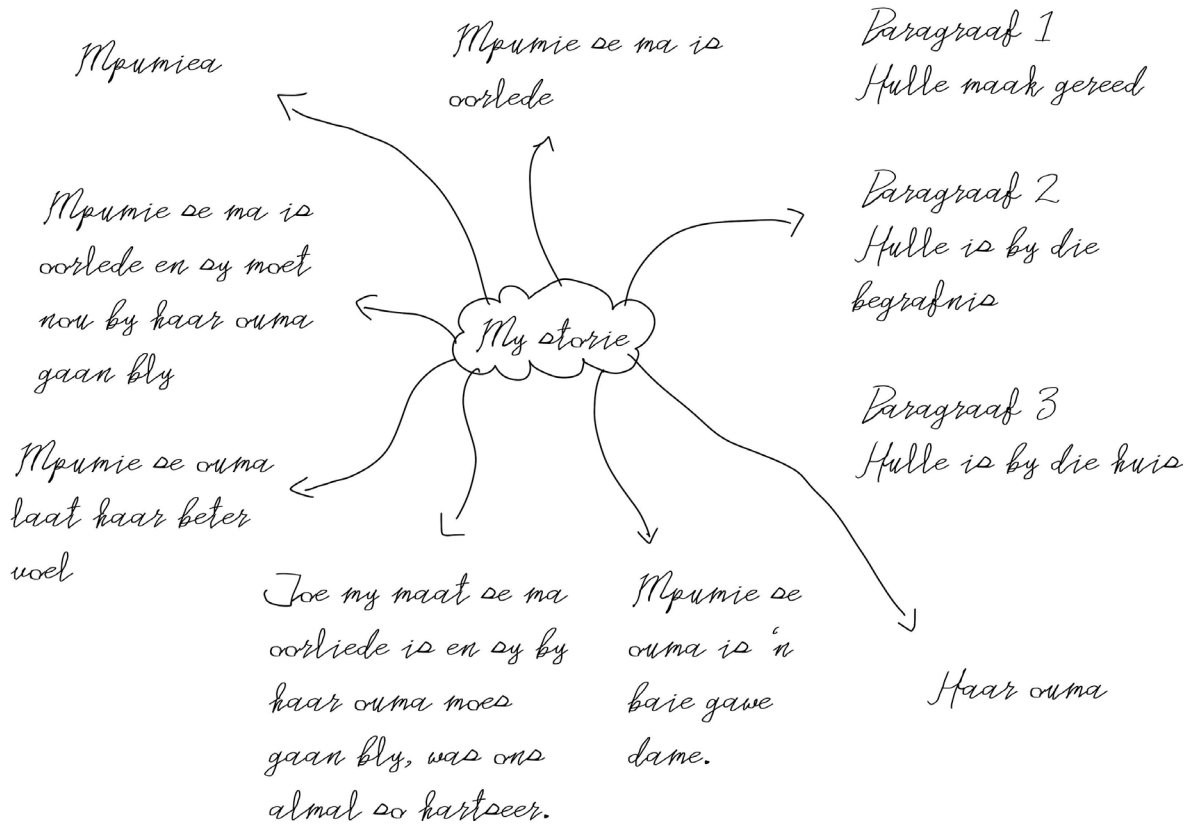 Mpumiea
Mpumie se ma is
oorlede
Paragraaf 1
Hulle maak gereed
Paragraaf 2
Hulle is by die
begrafnis
Paragraaf 3
Hulle is by die huis
Mpumie se ma is
oorlede en sy moet
nou by haar ouma
gaan bly
My storie
Mpumie se ouma
laat haar beter
voel
Toe my maat se ma
oorliede is en sy by
haar ouma moes
gaan bly, was ons
almal so hartseer.
Mpumie se
ouma is 'n
baie gawe
dame.
Haar ouma